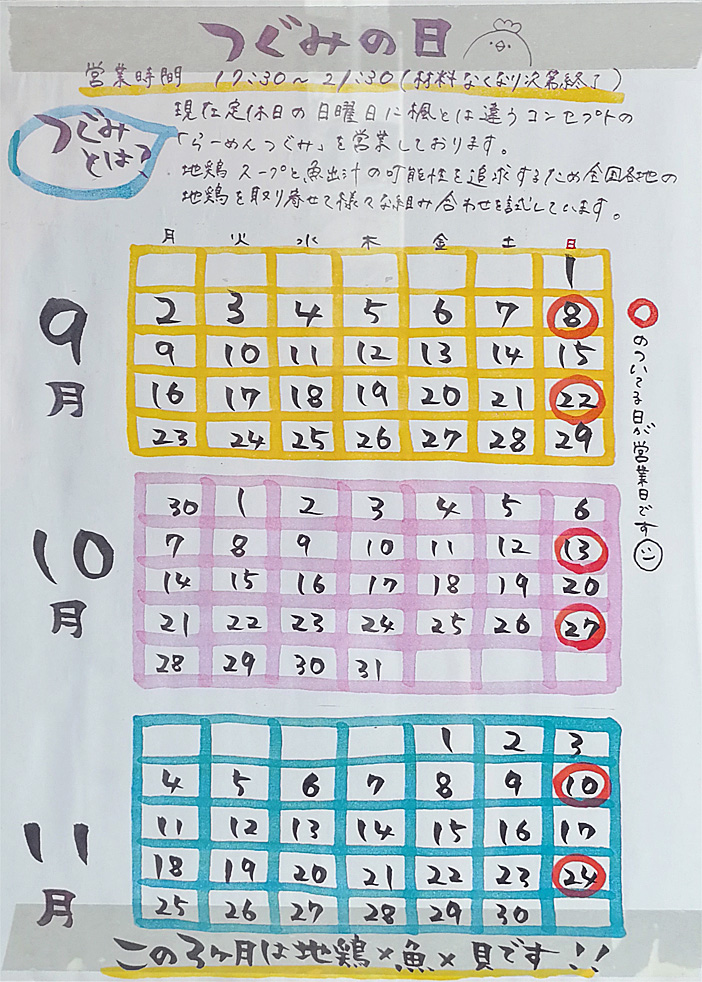 つぐみの日
営業時間 17:30〜21:30(材料なくなり次第終了)
つぐみ
とは?
現在定休日の日曜日に楓とは違うコンセプトの
「らーめんつぐみ」を営業しております。
地鶏スープと魚出汁の可能性を追求するため全国各地の
地鶏を取り寄せて様々な組み合わせを試しています。
月 火 水 木 金 土 日
9月
1
2 3 4 5 6 7 8
9 10 11 12 13 14 15
16 17 18 19 20 21 22
23 24 25 26 27 28 29
○のついてる日が営業日です
10月
30 1 2 3 4 5 6
7 8 9 10 11 12 13
14 15 16 17 18 19 20
21 22 23 24 25 26 27
28 29 30 31
11月
1 2 3
4 5 6 7 8 9 10
11 12 13 14 15 16 17
18 19 20 21 22 23 24
25 26 27 28 29 30
この3ヶ月は地鶏×魚×貝です!!